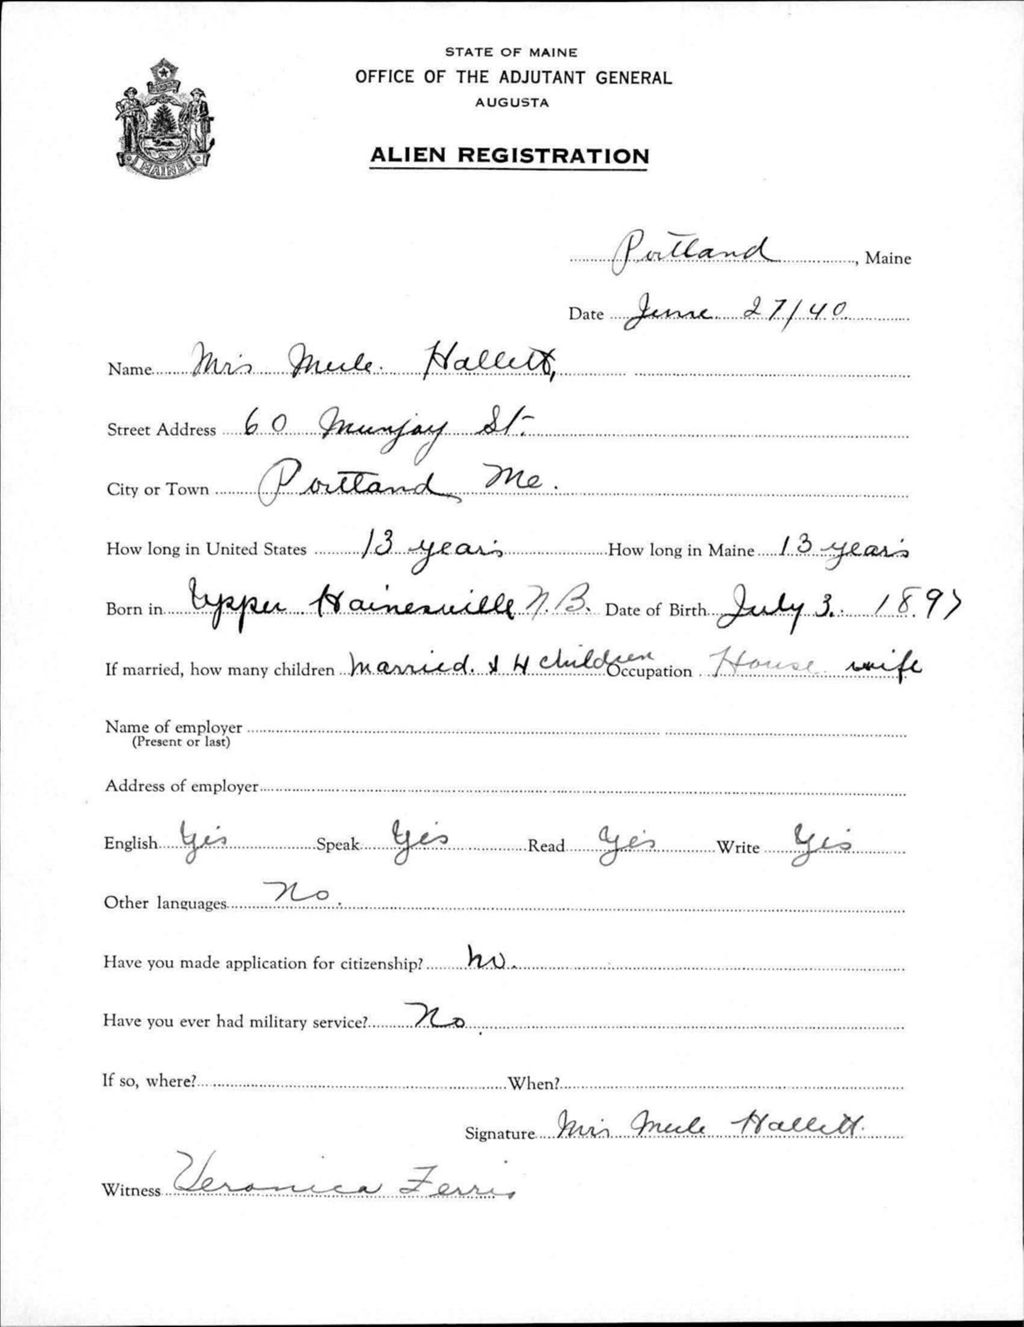 STATE OF MAINE
OFFICE OF THE ADJUTANT GENERAL
AUGUSTA
ALIEN REGISTRATION
MAINE
Portland, Maine
Date June 27/40.
Name Mrs Merle Hallett,
Street Address 60 Munjoy St.
City or Town Portland Me.
How long in United States 13 years How long in Maine 13 years
Born in Upper Hainesville N.B. Date of Birth July 3. 1897
If married, how many children Married. & 4 children Occupation House wife
Name of employer
(Present or last)
Address of employer
English Yes Speak Yes Read Yes Write Yes
Other languages No.
Have you made application for citizenship? No.
Have you ever had military service? No.
If so, where? When?
Signature Mrs Merle Hallett.
Witness Veronica Ferris